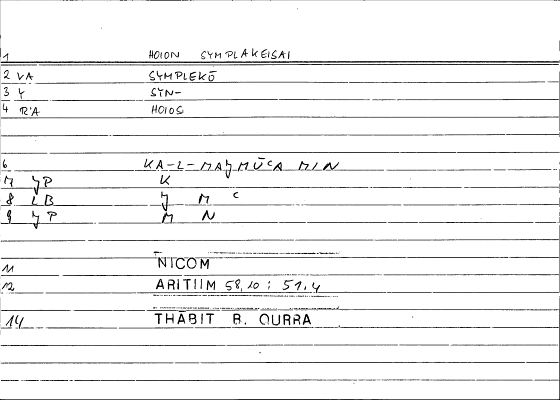 1 HOION SYMPLAKEISAI
2 VA SYMPLEKŌ
3 Y SYN-
4 R'A HOIOS
6 KA-L-MAJMŪCA MIN
7 JP K
8 LB J M C
9 JP M N
11 NICOM
12 ARITIIM 58,10 : 51,4
14 THĀBIT B. QURRA